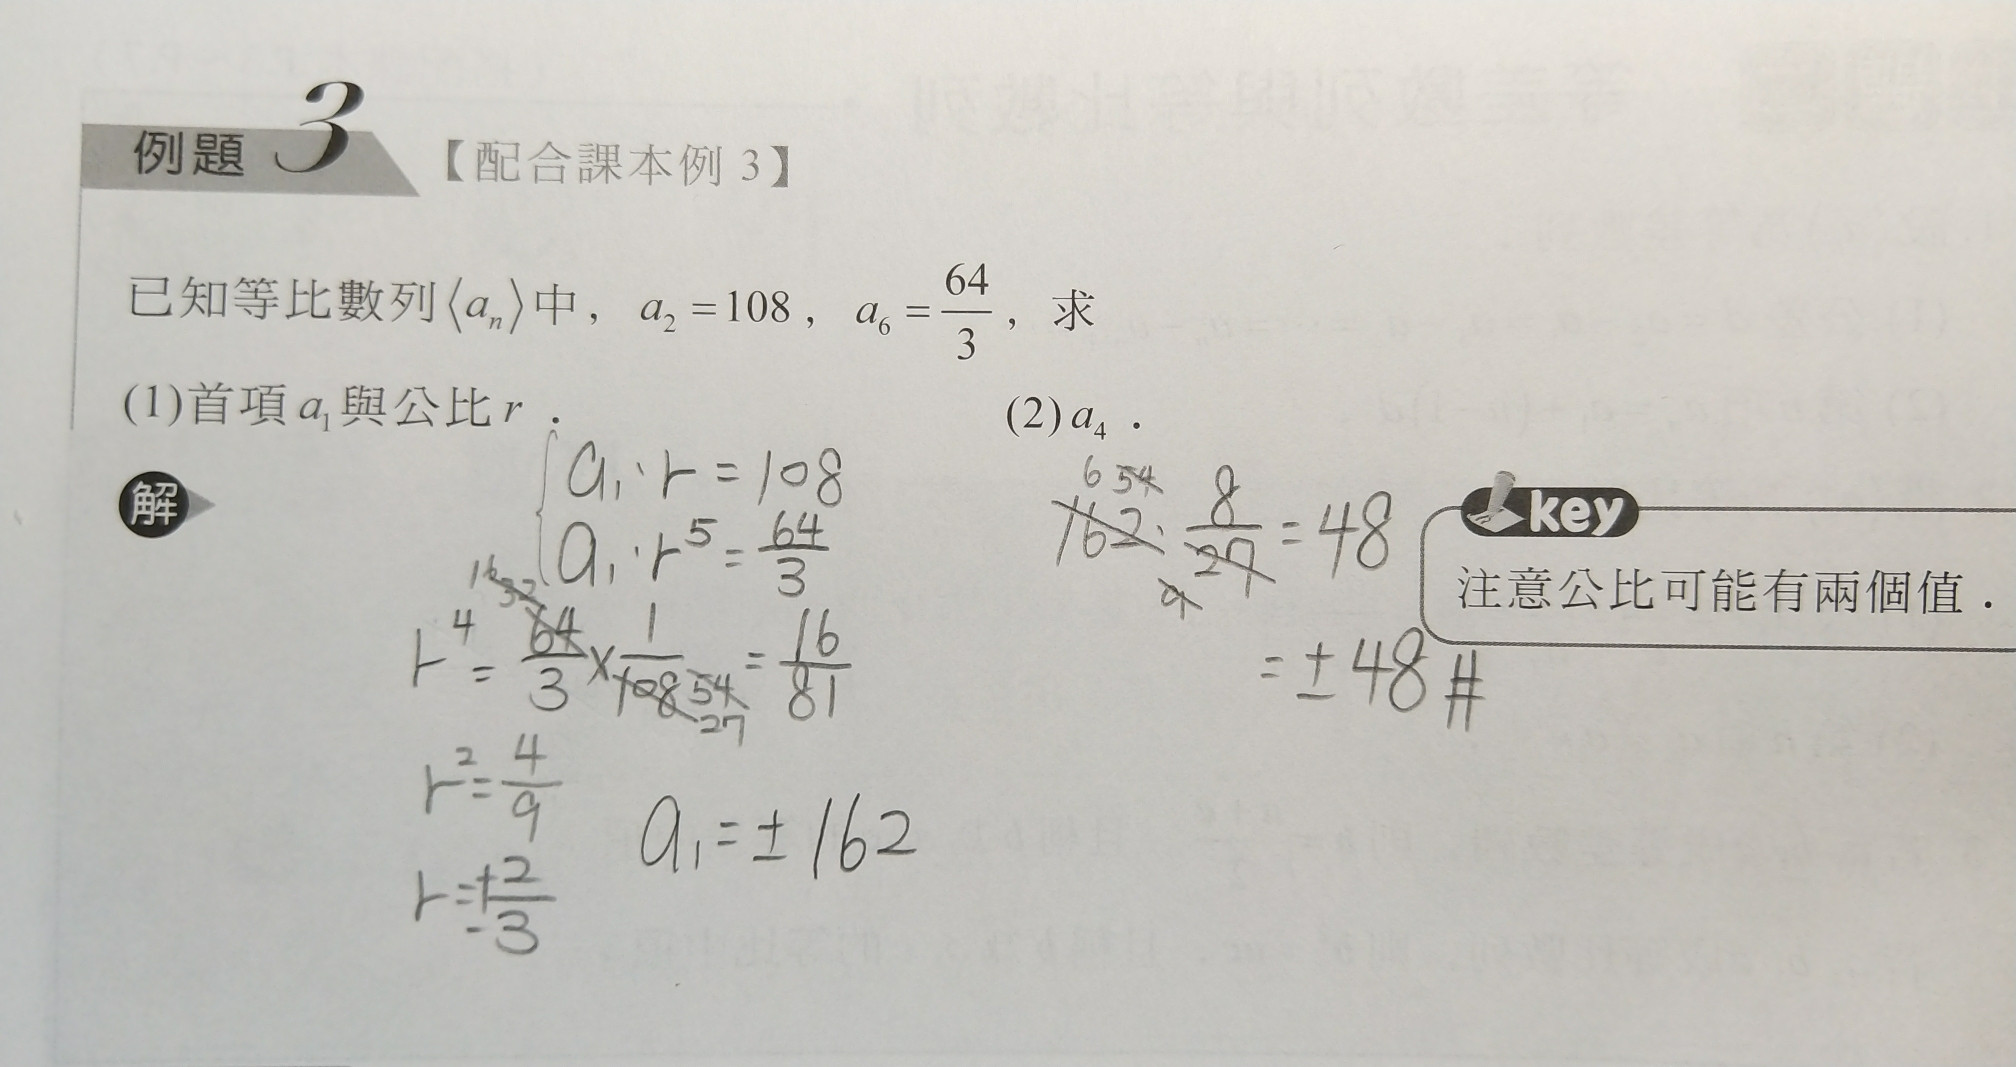 例題 3 【配合課本例 3】
已知等比數列⟨aₙ⟩中，a₂ = 108，a₆ = 64/3，求
(1)首項 a₁ 與公比 r ．
(2) a₄ ．
解
a₁·r = 108
a₁·r⁵ = 64/3
16 32
r⁴ = 64/3 × 1/108 54 27 = 16/81
r² = 4/9
r = ±2/3
a₁ = ±162
6 54
162 · 8/27 = 48
9
= ±48 #
key
注意公比可能有兩個值．